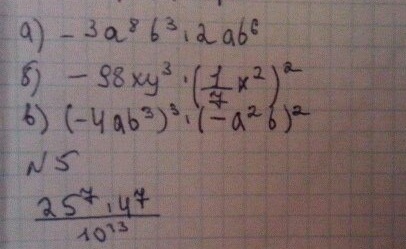 а) - 3a⁸b³ · 2ab⁶
б) - 98xy³ · (1/7 x²)²
в) (-4ab³)³ · (-a²b)²
N 5
25⁷ · 4⁷ / 10¹³